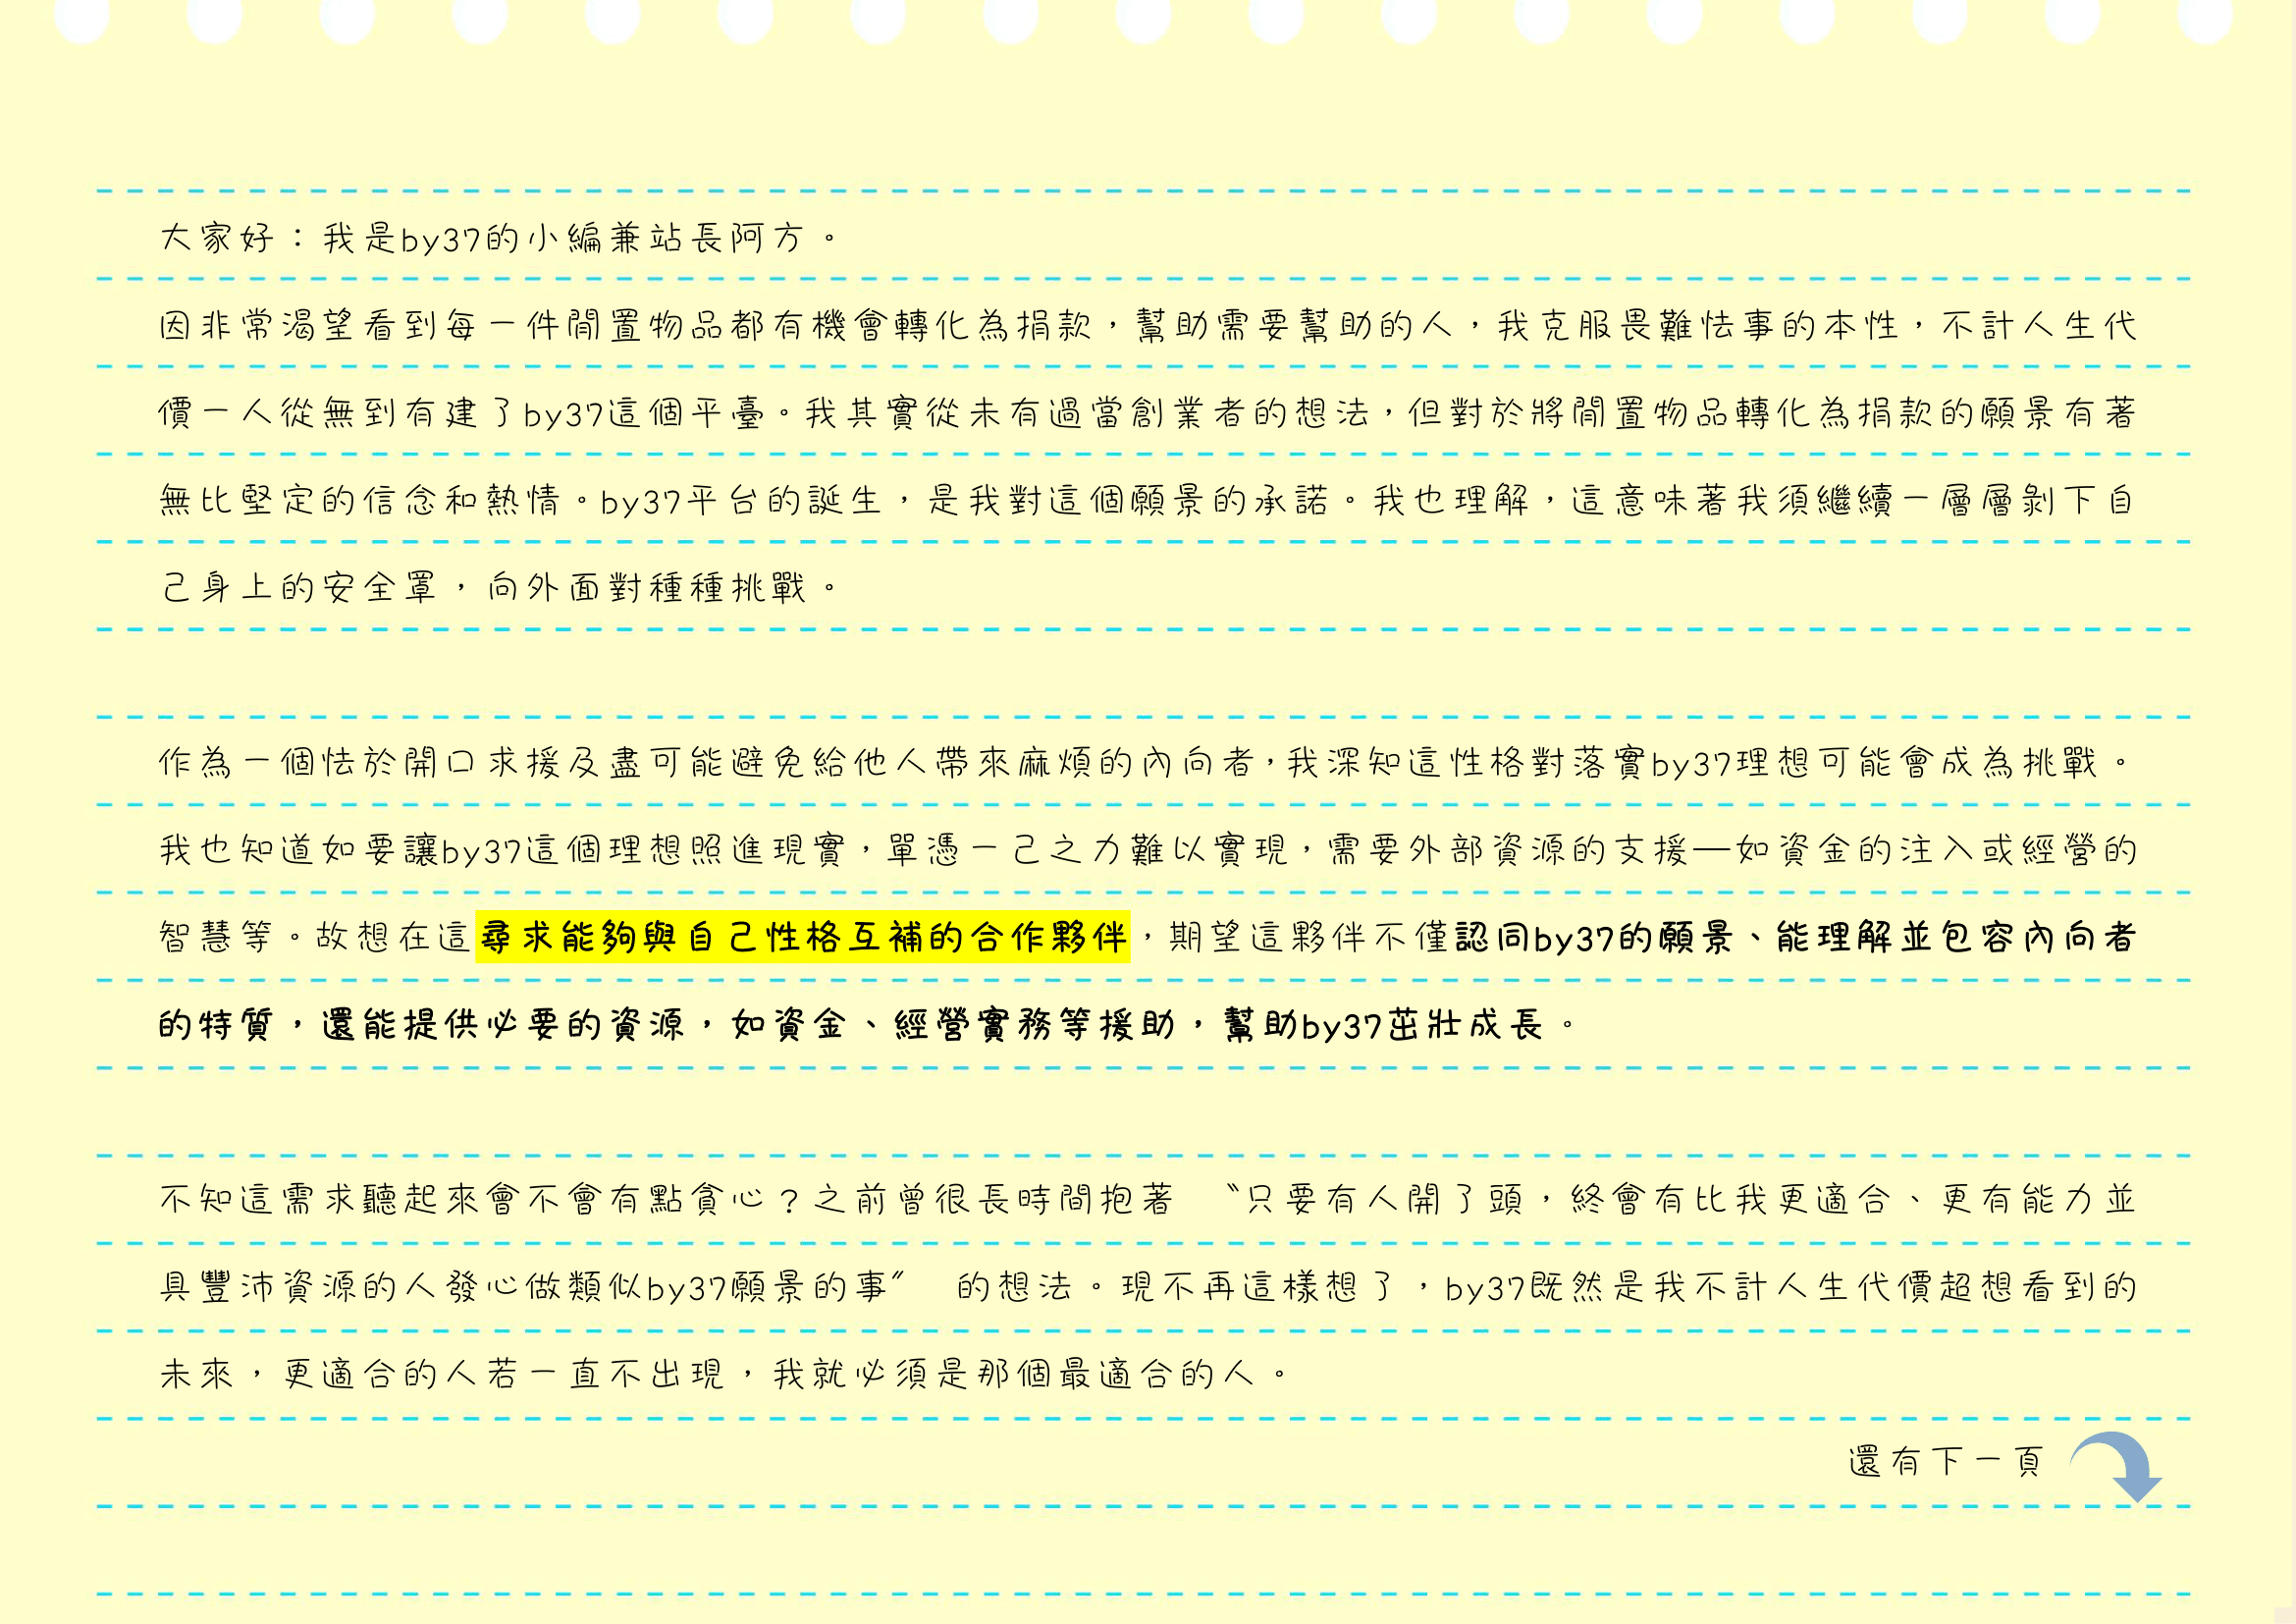 大家好：我是by37的小編兼站長阿方。
因非常渴望看到每一件閒置物品都有機會轉化為捐款，幫助需要幫助的人，我克服畏難怯事的本性，不計人生代
價一人從無到有建了by37這個平臺。我其實從未有過當創業者的想法，但對於將閒置物品轉化為捐款的願景有著
無比堅定的信念和熱情。by37平台的誕生，是我對這個願景的承諾。我也理解，這意味著我須繼續一層層剝下自
己身上的安全罩，向外面對種種挑戰。
作為一個怯於開口求援及盡可能避免給他人帶來麻煩的內向者，我深知這性格對落實by37理想可能會成為挑戰。
我也知道如要讓by37這個理想照進現實，單憑一己之力難以實現，需要外部資源的支援—如資金的注入或經營的
智慧等。故想在這尋求能夠與自己性格互補的合作夥伴，期望這夥伴不僅認同by37的願景、能理解並包容內向者
的特質，還能提供必要的資源，如資金、經營實務等援助，幫助by37茁壯成長。
不知這需求聽起來會不會有點貪心？之前曾很長時間抱著 〝只要有人開了頭，終會有比我更適合、更有能力並
具豐沛資源的人發心做類似by37願景的事〞 的想法。現不再這樣想了，by37既然是我不計人生代價超想看到的
未來，更適合的人若一直不出現，我就必須是那個最適合的人。
還有下一頁